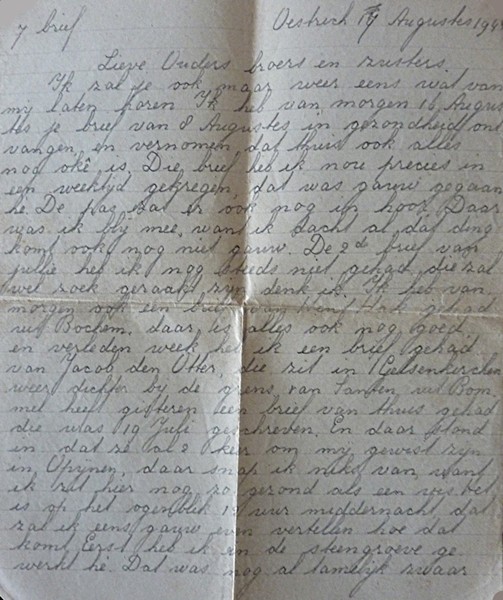 7 brief Oestrich 17 Augustes 194
Lieve Ouders broers en zusters.
Ik zal je ook maar weer eens wat van
my laten horen Ik heb van morgen 16 Augus
tes je brief van 8 Augustes in gezondheid ont
vangen, en vernomen, dat thuis ook alles
nog okê is. Die brief heb ik nou precies in
een weektyd gekregen, dat was gauw gegaan
hè. De pas zat er ook nog in hoor. Daar
was ik bly mee, want ik dacht al dat ding
komt ook nog niet gauw. De 2de brief van
jullie heb ik nog steeds niet gehad, die zal
wel zoek geraakt zyn denk ik. Ik heb van
morgen ook een brief van Henk Hak gehad
uit Bochem, daar is alles ook nog goed,
en verleden week heb ik een brief gehad
van Jacob den Otter, die zit in Gelsenkerchen
weer dichter by de grens, van Santen uit Bom
mel heeft gisteren een brief van thuis gehad
die was 19 Juli geschreven. En daar stond
in dat ze al 2 keer om my geweest zyn
in Opynen, daar snap ik niks van, want
ik zit hier nog zo gezond als een vis. Het
is op het ogenblik 1 uur middernacht, dat
zal ik eens gauw even vertellen hoe dat
komt. Eerst heb ik in de steengroeve ge
werkt hè. Dat was nog al tamelyk zwaar